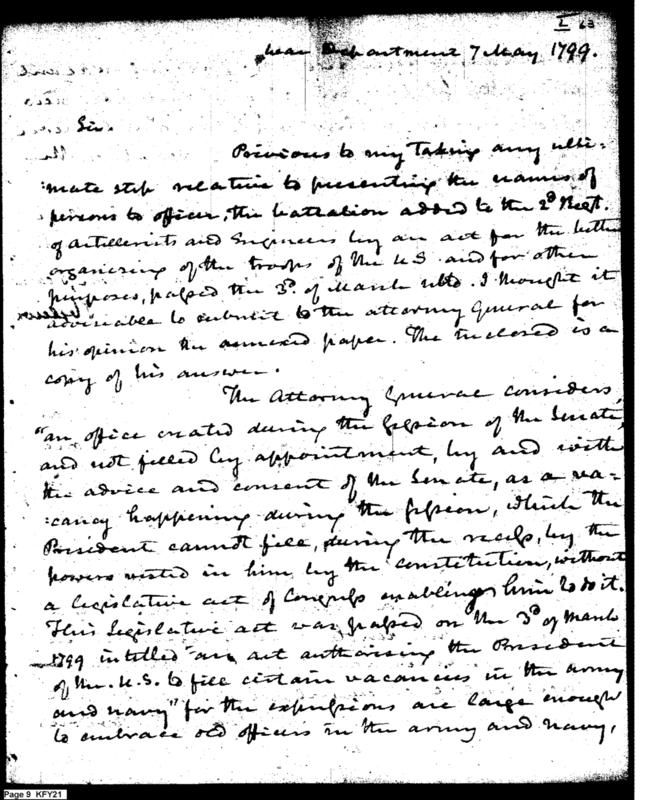 I 63
War Department 7 May 1799.
Sir.
Previous to my taking any ulti=
=mate step relative to presenting the names of
persons to officer, the battalion added to the 2d Regt.
of artillerists and Engineers by an act for the better
organizing of the troops of the U S and for other
purposes, passed the 3d of March ulto. I thought it
adviseable to submit to the attorney General for
his opinion the annexed paper. The Enclosed is a
copy of his answer.
The Attorney General considers,
"an office created during the session of the Senate,
and not filled by appointment, by and with
the advice and consent of the Senate, as a va=
=cancy happening during the session, which the
President cannot fill, during the recess, by the
powers vested in him by the constitution, without
a legislative act of Congress enabling him to do it.
This Legislative act was passed on the 3d of March
1799 intitled "an act authorising the President
of the U.S. to fill certain vacancies in the army
and navy" for the expressions are large enough
to embrace old officers in the army and navy,
Page 9 KFY21